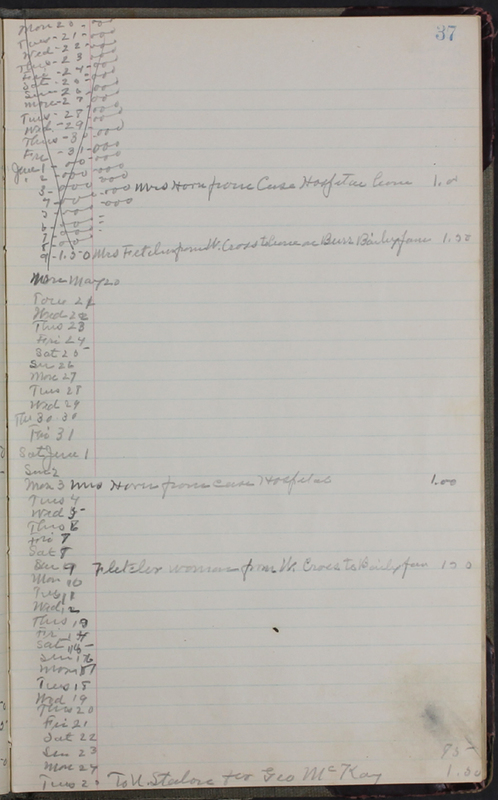 37
Mon 20 - 000
Tues - 21 - 000
Wed - 22 - 000
Thus - 23 - 000
Fri - 24 - 000
Sat - 25 - 000
Sun - 26 - 000
Mon - 27 - 000
Tues - 28 - 000
Wed - 29 - 000
Thus - 30 - 000
Fri - 31 - 000
June 1 - 000 - 000
2 - 000 - 000
3 - 000 - 000 Mrs Horn from Case Hospital home 1.0
4 - 000 - 000
5 - 000
6 - 000
7 - 000
8 - 000
9 - 1.50 Mrs Fletcher from W. Cross to home on Burr Baily farm 1.50
Mon May 20
Tues 21
Wed 22
Thus 23
Fri 24
Sat 25
Sun 26
Mon 27
Tues 28
Wed 29
Thu 30 30
Fri 31
Sat June 1
Sun 2
Mon 3 Mrs Horn from Case Hospital 1.00
Tues 4
Wed 5
Thus 6
Fri 7
Sat 8
Sun 9 Fletcher woman from W. Cross to Baily farm 150
Mon 10
Tues 11
Wed 12
Thus 13
Fri 14
Sat 15
Sun 16
Mon 17
Tues 18
Wed 19
Thus 20
Fri 21
Sat 22
Sun 23 95
Mon 24 1.50
Tues 2 To N. Geo McKay